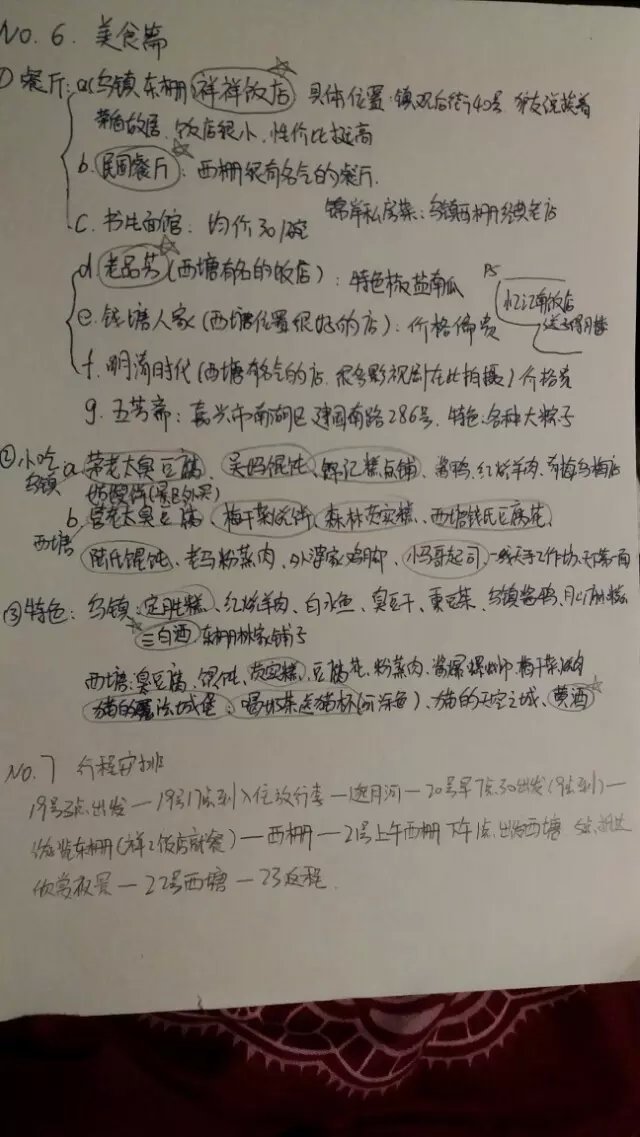 NO. 6. 美食篇
① 餐厅: a(乌镇东栅 祥祥饭店 具体位置: 镇观后街40号
茅盾故居、饭店很小、性价比挺高
b. 民国餐厅: 西栅很有名气的餐厅.
C. 书生面馆. 均价30/碗 锦岸私房菜: 乌镇西栅经典老店
d 老品芳 (西塘有名的饭店): 特色椒盐南瓜 PS
e. 钱塘人家 (西塘位置很好的店): 价格偏贵 忆江南饭店
送子得月楼
f. 明清时代 (西塘有名气的店. 很多影视剧在此拍摄) 价格贵
g. 五芳斋: 嘉兴市南湖区 建国南路286号. 特色: 各种大粽子
② 小吃 a 管老太臭豆腐、吴妈馄饨、锦记糕点铺、酱鸭、红烧羊肉、
乌镇 姑嫂饼
b. 管老太臭豆腐、梅干菜烧饼、森林芡实糕、西塘钱氏豆腐花、
西塘
陆氏馄饨、老马粉蒸肉、外婆家鸡脚、小马哥起司、
③ 特色: 乌镇: 定胜糕、红烧羊肉、白水鱼、臭豆干、熏豆茶、乌镇酱鸭、
三白酒 东栅林家铺子
西塘: 臭豆腐、馄饨、芡实糕、豆腐花、粉蒸肉、酱爆螺蛳、梅干菜
猫的魔法城堡: 喝奶茶送猫杯(可涂鱼)、猫的天空之城、黄酒
NO. 7 行程安排
19号3点出发 — 19号17点到入住放行李 — 逛月河 — 20号早7点30出发(9点到) —
游览东栅(祥祥饭店就餐) — 西栅 — 21号上午西栅 下午1点出发西塘 5点
欣赏夜景 — 22号西塘 — 23返程.